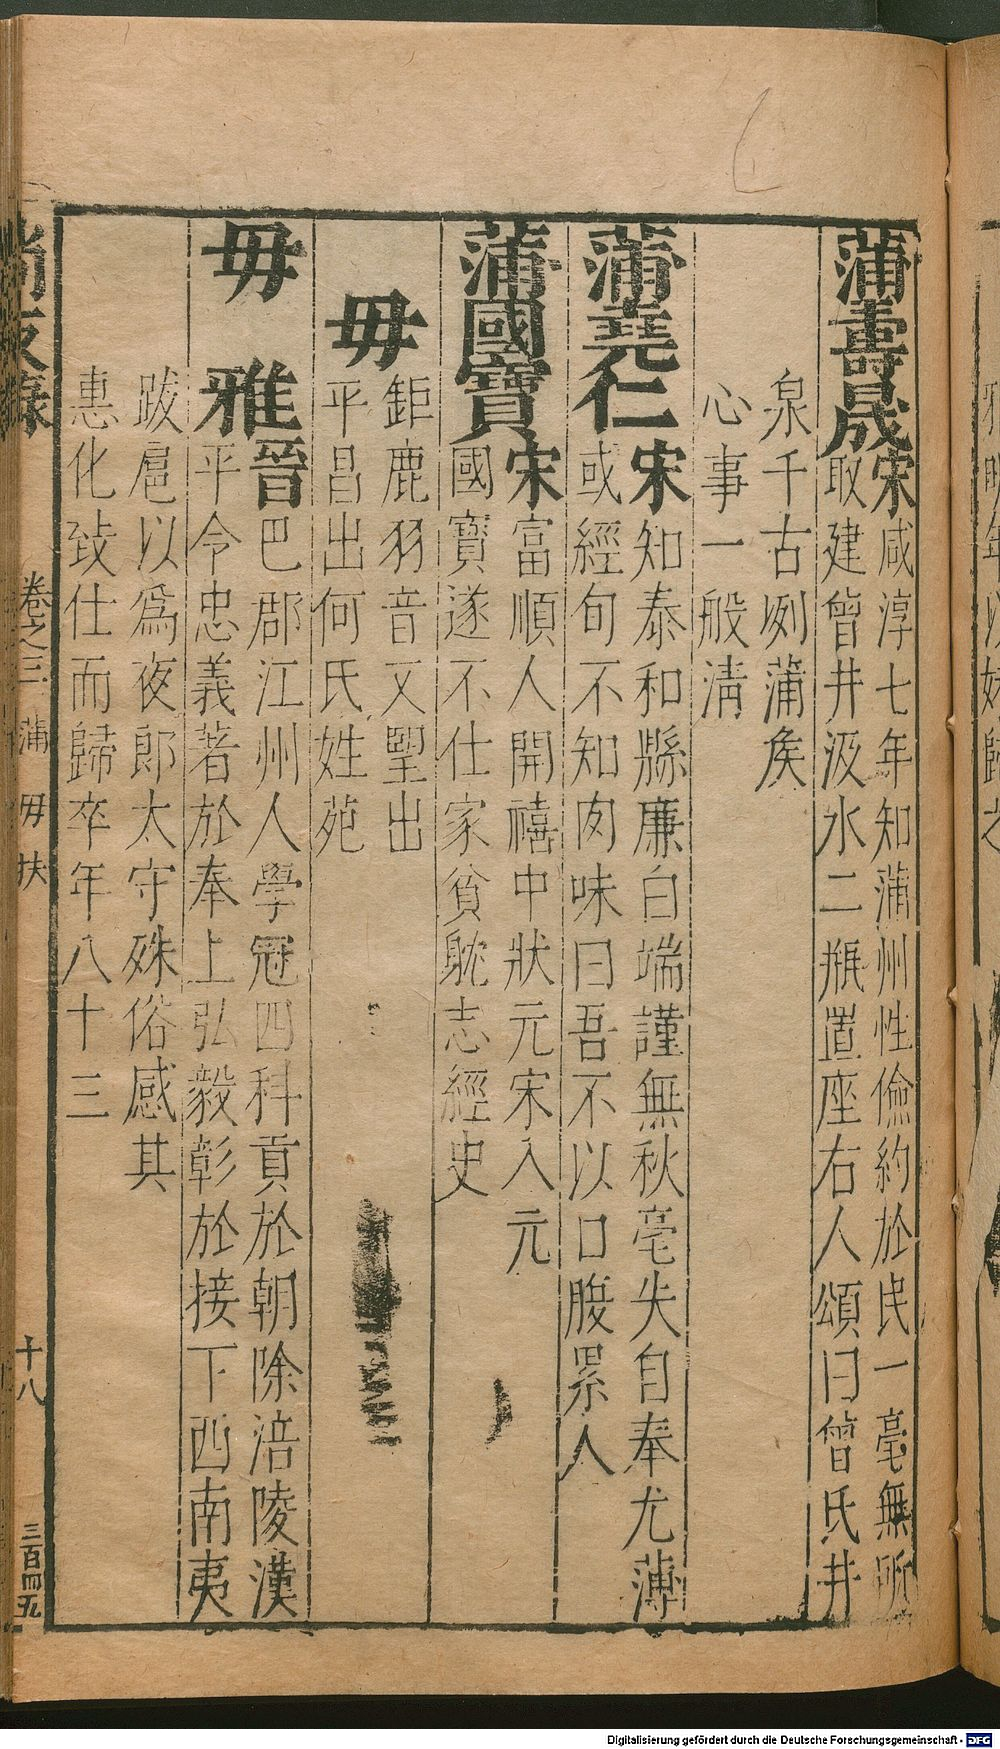 蒲壽晟
宋咸淳七年知蒲州性儉約於民一毫無所
取建曾井汲水二瓶置座右人頌曰曾氏井
泉千古冽蒲侯
心事一般淸
蒲堯仁
宋知泰和縣廉白端謹無秋毫失自奉尤薄
或經旬不知肉味曰吾不以口腹累人
蒲國寶
宋富順人開禧中狀元宋入元
國寶遂不仕家貧躭志經史
毋
鉅鹿羽音又望出
平昌出何氏姓苑
毋 雅
晉巴郡江州人學冠四科貢於朝除涪陵漢
平令忠義著於奉上弘毅彰於接下西南夷
跋扈以爲夜郎太守殊俗感其
惠化致仕而歸卒年八十三
尚友錄 卷之三 蒲 毋 扶 十八 三百四九
Digitalisierung gefördert durch die Deutsche Forschungsgemeinschaft - DFG